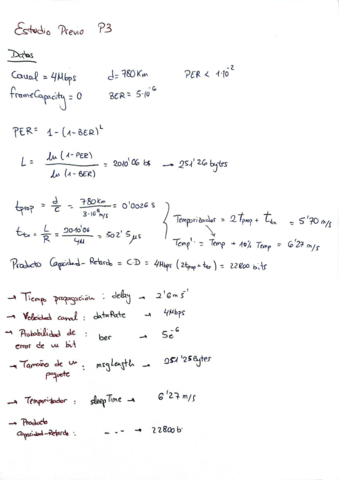 Estudio Previo P3
Datos
Canal = 4Mbps d= 780 Km PER < 1·10^-2
frameCapacity = 0 BER = 5·10^-6
PER = 1 - (1-BER)^L
L = ln (1-PER) / ln (1-BER) = 2010'06 bits → 251'26 bytes
tprop = d/c = 780 km / 3·10^8 m/s = 0'0026 s
Temporizador = 2 tprop + ttx = 5'70 m/s
ttx = L/R = 2010'06 / 4M = 502'5 μs
Temp' = Temp + 10% Temp = 6'27 m/s
Producto Capacidad-Retardo = C·D = 4Mbps (2tprop + ttx) = 22800 bits
→ Tiempo propagación : delay → 2'6 ms
→ Velocidad canal : dataRate → 4Mbps
→ Probabilidad de error de un bit : ber → 5e^-6
→ Tamaño de un paquete : msgLength → 251'25 Bytes
→ Temporizador : sleepTime → 6'27 m/s
→ Producto Capacidad-Retardo : - - - → 22800 b